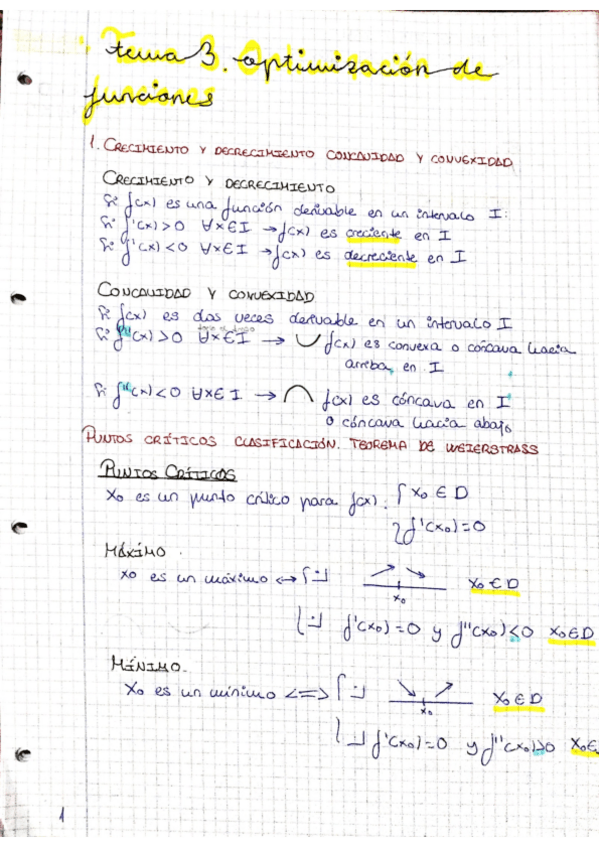 Tema 3. Optimización de
funciones
1. CRECIMIENTO Y DECRECIMIENTO CONCAVIDAD Y CONVEXIDAD
CRECIMIENTO Y DECRECIMIENTO
Si f(x) es una función derivable en un intervalo I:
Si f'(x)>0 ∀x∈I → f(x) es creciente en I
Si f'(x)<0 ∀x∈I → f(x) es decreciente en I
CONCAVIDAD Y CONVEXIDAD
Si f(x) es dos veces derivable en un intervalo I
Si f''(x)>0 ∀x∈I → ∪ f(x) es convexa o cóncava hacia
arriba en I
Si f''(x)<0 ∀x∈I → ∩ f(x) es cóncava en I
o cóncava hacia abajo
PUNTOS CRÍTICOS CLASIFICACIÓN. TEOREMA DE WEIERSTRASS
PUNTOS CRÍTICOS
x₀ es un punto crítico para f(x): { x₀ ∈ D
f'(x₀)=0
MÁXIMO.
x₀ es un máximo ↔ { x₀ x₀ ∈ D
f'(x₀)=0 y f''(x₀)<0 x₀∈D
MÍNIMO.
x₀ es un mínimo <=> { x₀ x₀ ∈ D
f'(x₀)=0 y f''(x₀)>0 x₀∈
1